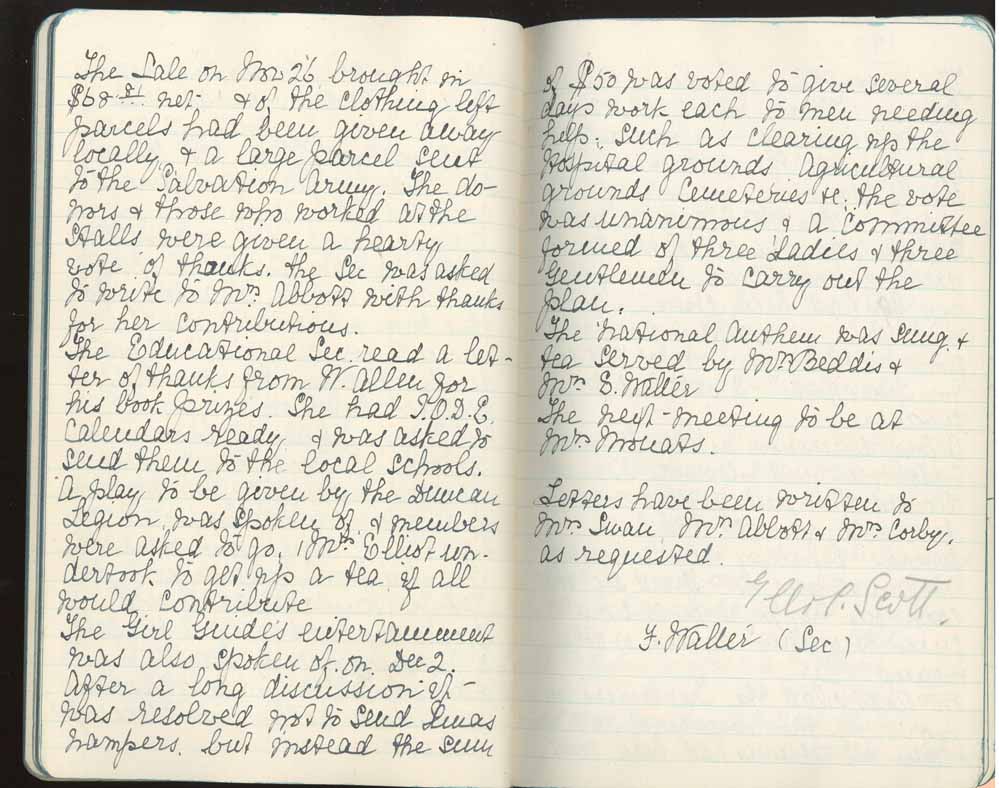 The Sale on Nov 26 brought in
$68.81 net. & of the clothing left
parcels had been given away
locally & a large parcel sent
to the Salvation Army. The do-
nors & those who worked at the
Stalls were given a hearty
vote of thanks. the Sec was asked
to write to Mrs Abbott with thanks
for her contributions.
The Educational Sec read a let-
ter of thanks from W. Allen for
his book prizes. She had I.O.D.E.
Calendars ready & was asked to
send them to the local schools.
A play to be given by the Duncan
Legion was spoken of & members
were asked to go. Mrs Elliot un-
dertook to get up a tea if all
would contribute
The Girl Guides entertainment
was also spoken of. on Dec 2.
After a long discussion it
was resolved not to send Xmas
hampers. but instead the sum
of $50 was voted to give several
days work each to men needing
help: such as clearing up the
Hospital grounds Agricultural
grounds Cemeteries &c. the vote
was unanimous & a Committee
formed of three Ladies & three
Gentlemen to carry out the
plan.
The National Anthem was sung &
tea served by Mrs Beddis &
Mrs S. Waller
The next meeting to be at
Mrs Mouats.
Letters have been written to
Mrs Swan, Mrs Abbott & Mrs Corby.
as requested.
Scott.
F. Waller (Sec)